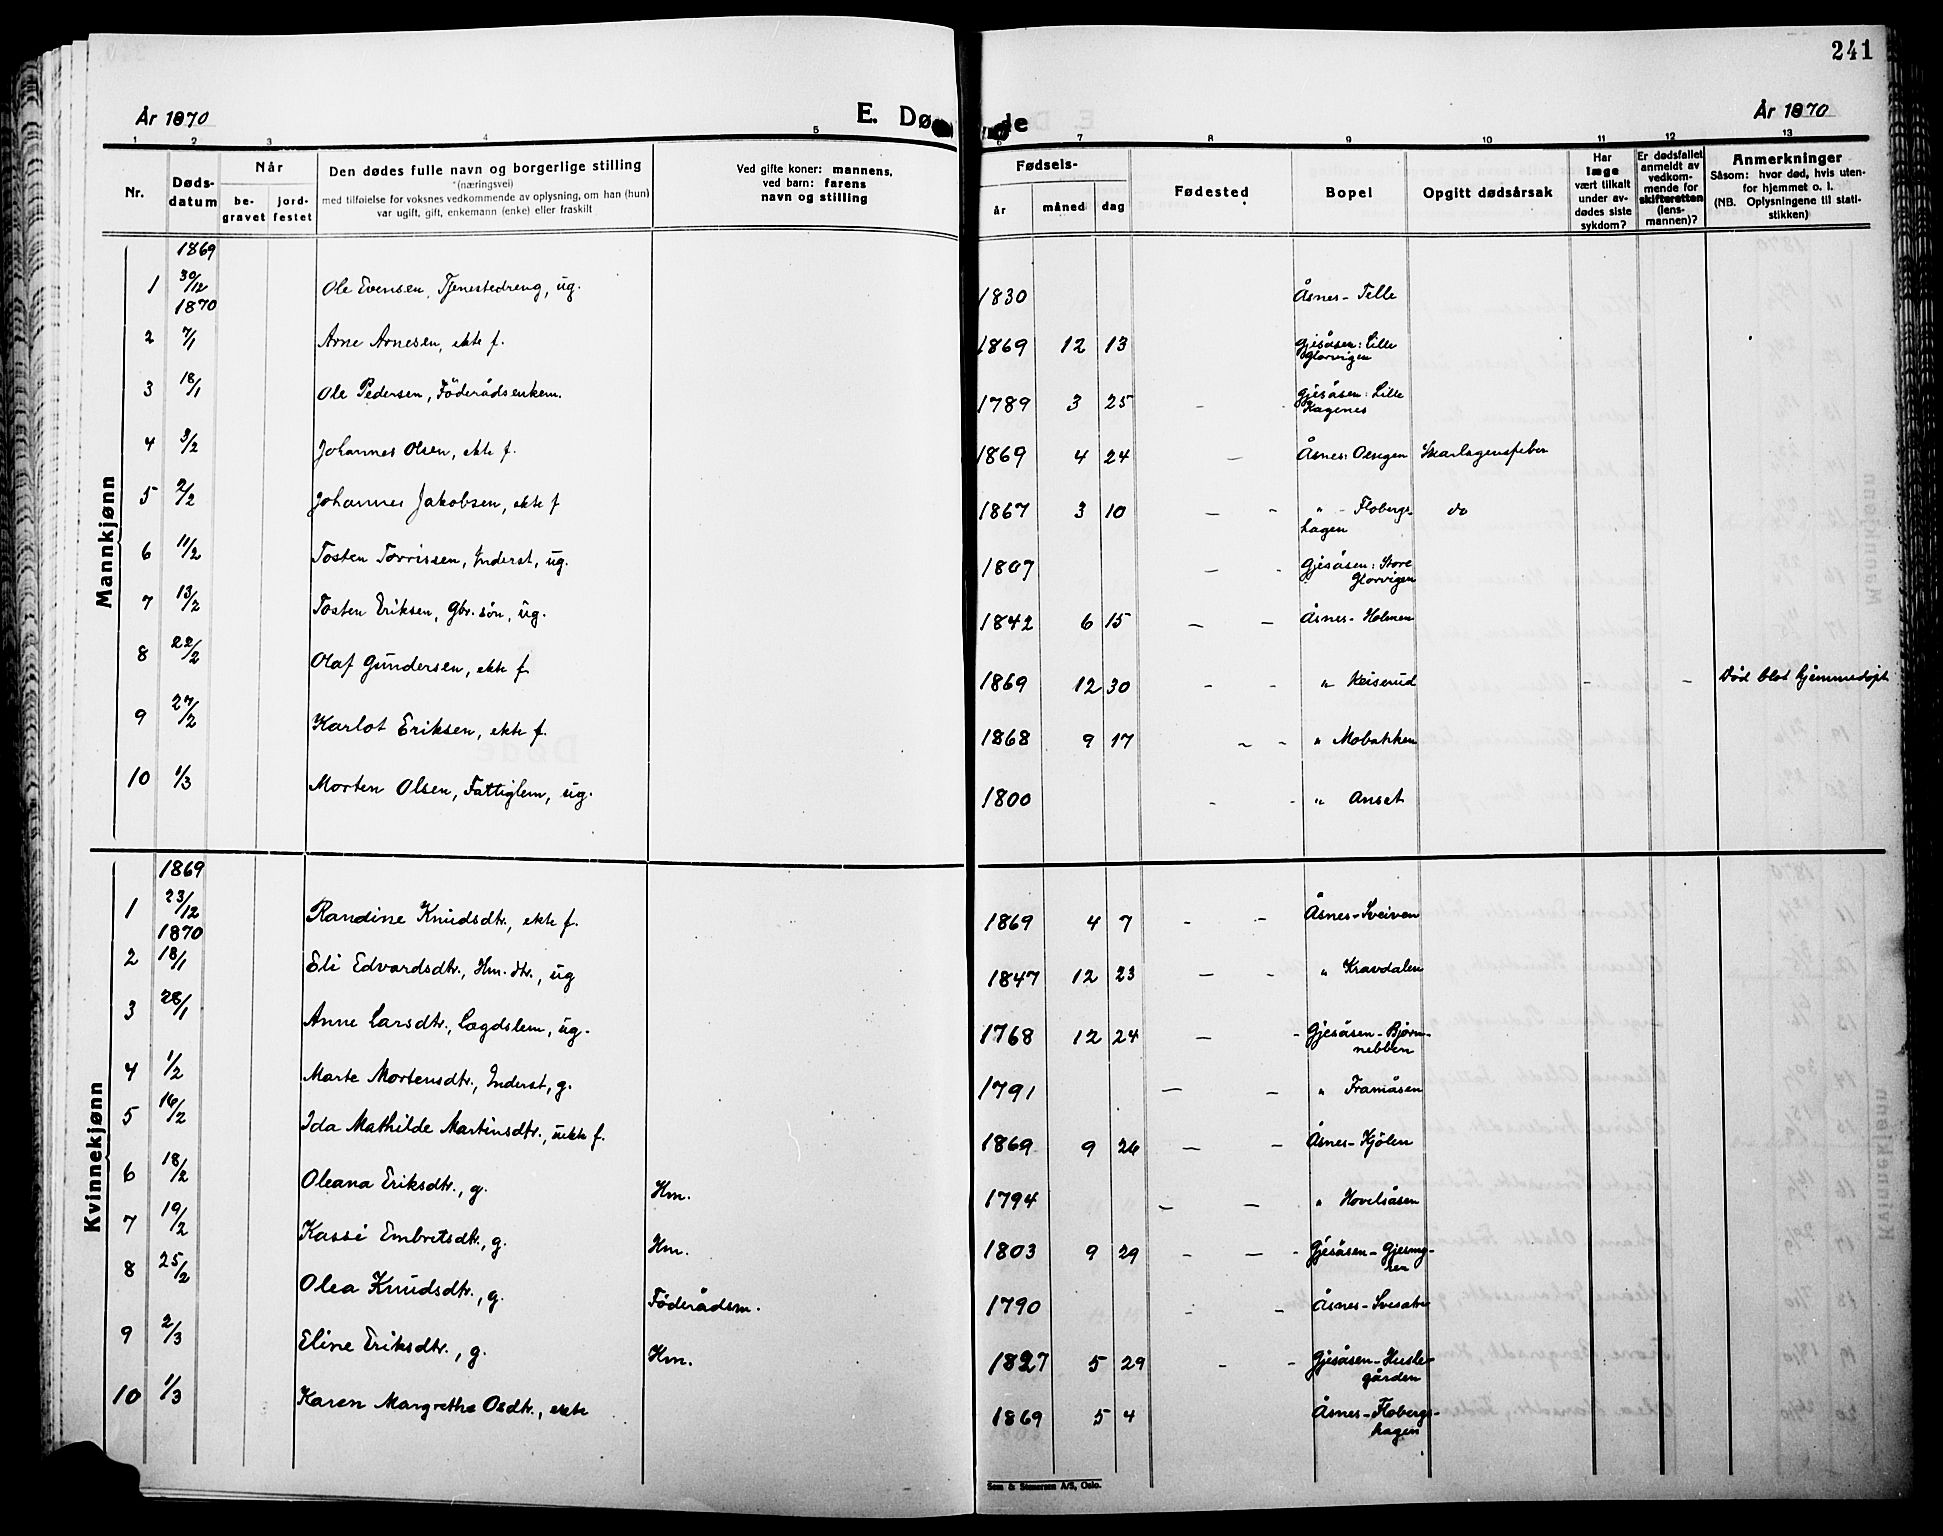 241
År 1870
E. Dø
de
År 1870
1 2 3 4 5 6 7 8 9 10 11 12 13
Nr.
Døds-
datum
Når
be-
gravet
jord-
festet
Den dødes fulle navn og borgerlige stilling
(næringsvei)
med tilføielse for voksnes vedkommende av oplysning, om han (hun)
var ugift, gift, enkemann (enke) eller fraskilt
Ved gifte koner: mannens,
ved barn: farens
navn og stilling
Fødsels-
år måned dag
Fødested
Bopel
Opgitt dødsårsak
Har
læge
vært tilkalt
under av-
dødes siste
sykdom?
Er dødsfallet
anmeldt av
vedkom-
mende for
skifteretten
(lens-
mannen)?
Anmerkninger
Såsom: hvor død, hvis uten-
for hjemmet o. l.
(NB. Oplysningene til stati-
stikken)
Mannkjønn
1869
1 30/12 Ole Evensen, Tjenestedreng, ug. 1830 Åsnes - Telle
1870
2 7/1 Arne Arnesen, ekte f. 1869 12 13 Gjesåsen: Lille
Glorvigen
3 18/1 Ole Pedersen, Föderådsenkem. 1789 3 25 - - Gjesåsen: Lille
Hagenes
4 3/2 Johannes Olsen, ekte f. 1869 4 24 - Åsnes: Oersgen Skarlagensfeber
5 2/2 Johannes Jakobsen, ekte f 1867 3 10 - - " - Flobergs- do
hagen
6 11/2 Tosten Torrissen, Inderst, ug. 1807 - - Gjesåsen: Store
Glorvigen
7 13/2 Tosten Eriksen, Gbr. sön, ug. 1842 6 15 - - Åsnes - Holmen
8 22/2 Olaf Gundersen, ekte f. 1869 12 30 - - " Keiserud - - Död blot hjemmedöpt
9 27/2 Karlot Eriksen, ekte f. 1868 9 17 - - " Mobakken
10 1/3 Morten Olsen, Fattiglem, ug. 1800 - - " Anset
Kvinnekjønn
1869
1 23/12 Randine Knudsdtr., ekte f. 1869 4 7 - - Åsnes - Sveiven
1870
2 18/1 Eli Edvardsdtr., Hm. dtr., ug 1847 12 23 - - " Kravdalen
3 28/1 Anne Larsdtr., Lægdslem, ug. 1768 12 24 - - Gjesåsen - Bjørn-
nebben
4 1/2 Marte Mortensdtr., Inderst, g. 1791 - - " Framåsen
5 16/2 Ida Mathilde Martinsdtr., uekte f. 1869 9 26 - - Åsnes - Kjölen
6 18/2 Oleana Eriksdtr., g. Hm. 1794 - - " Hovelsåsen
7 19/2 Kassi Embretsdtr., g. Hm. 1803 9 29 - - - Gjesåsen -
8 25/2 Olea Knudsdtr., g. Föderådsm. 1790 - - Åsnes -
9 2/3 Eline Eriksdtr., g. Hm. 1827 5 29 - - Gjesåsen - Husle-
gården
10 1/3 Karen Margrethe Osdtr., ekte 1869 5 4 Åsnes - Flobergs-
hagen
Sem & Stenersen A/S, Oslo.